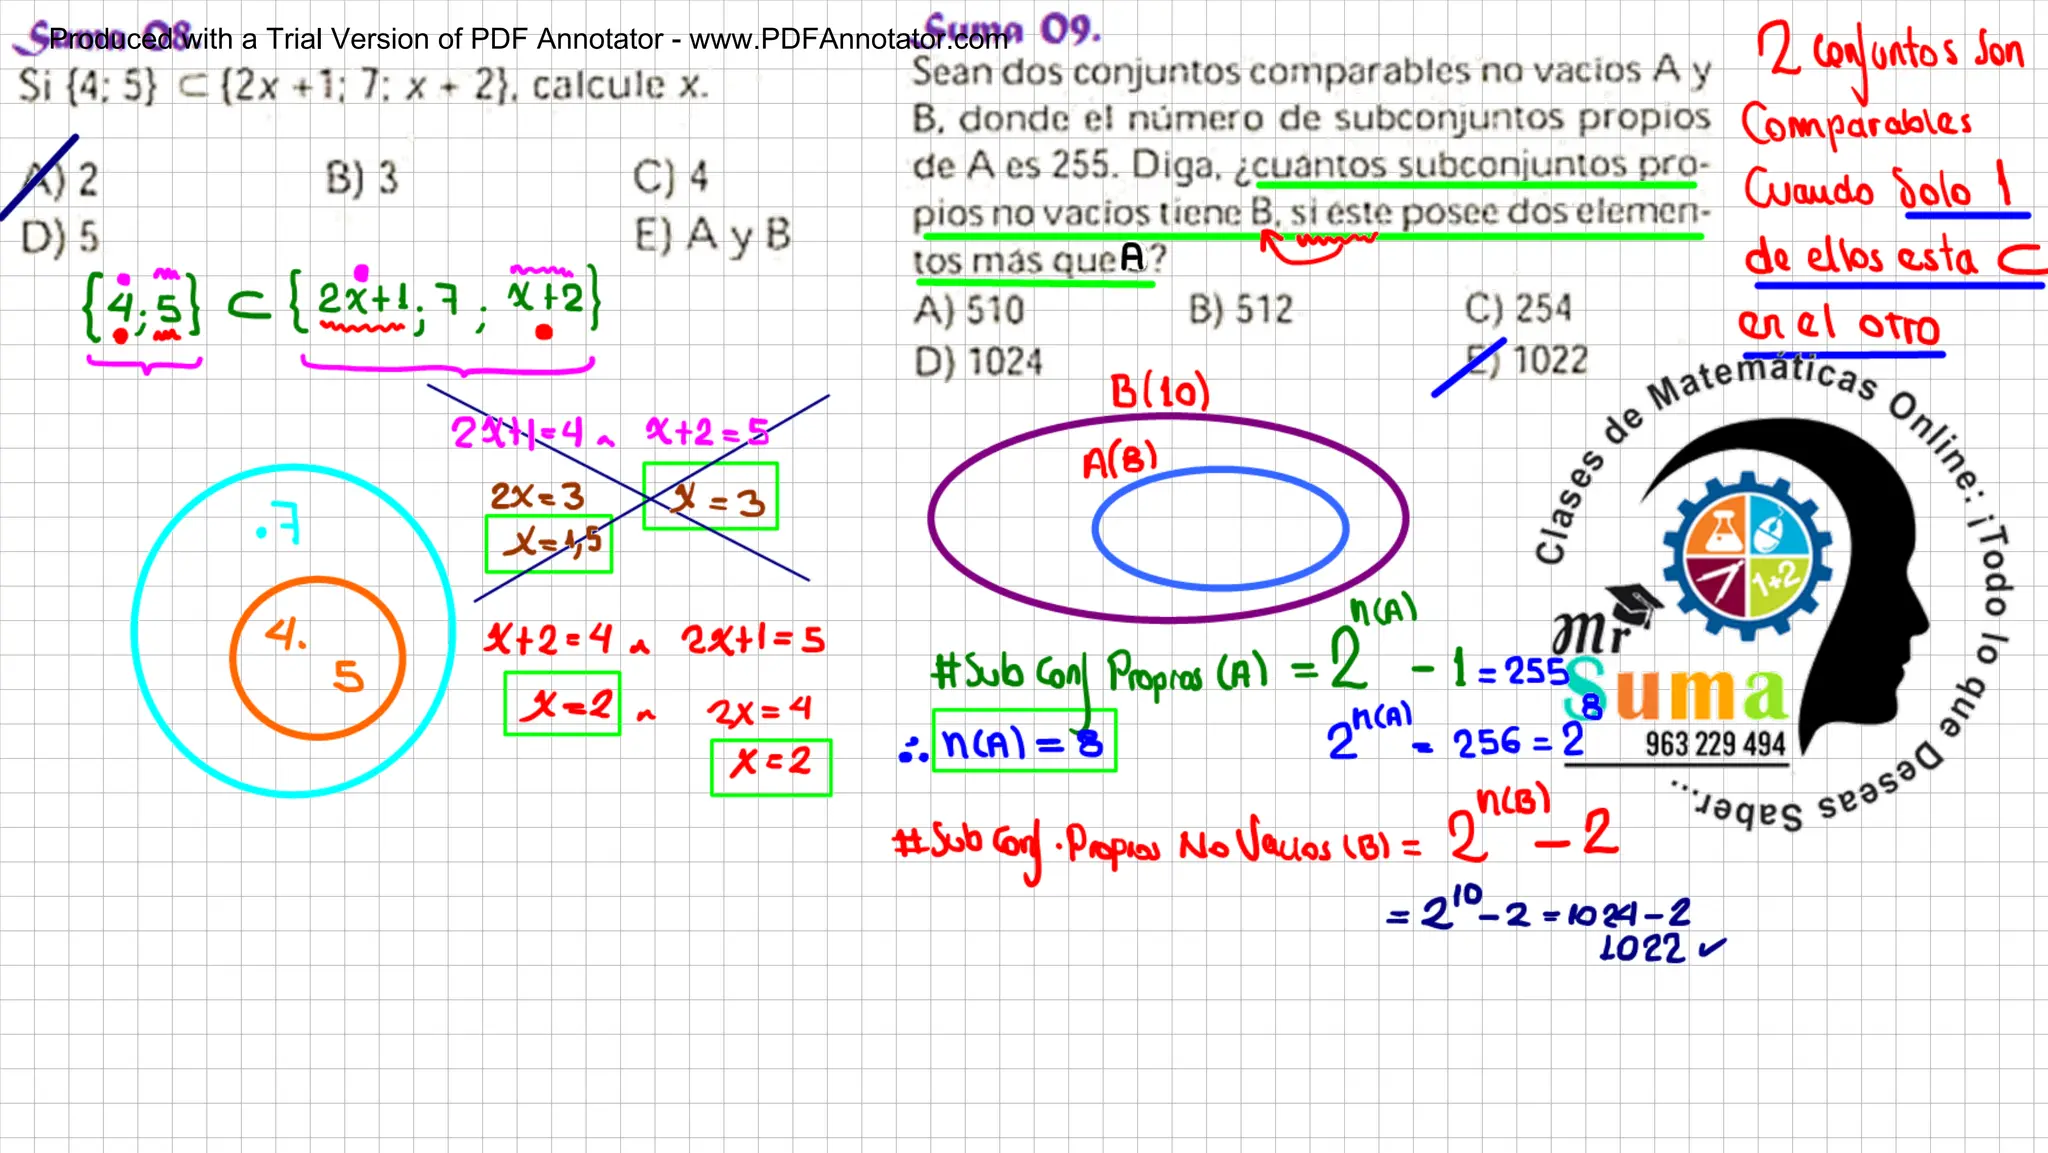 Suma 08.
Produced with a Trial Version of PDF Annotator - www.PDFAnnotator.com
Si {4; 5} ⊂ {2x + 1; 7; x + 2}, calcule x.
A) 2 B) 3 C) 4
D) 5 E) A y B
{4; 5} ⊂ {2x+1; 7; x+2}
2x+1=4 ∧ x+2=5
2x=3 x=3
x=1,5
.7
4.
5
x+2=4 ∧ 2x+1=5
x=2 ∧ 2x=4
x=2
Suma 09.
Sean dos conjuntos comparables no vacios A y
B, donde el número de subconjuntos propios
de A es 255. Diga, ¿cuántos subconjuntos pro-
pios no vacios tiene B, si éste posee dos elemen-
tos más que A?
A) 510 B) 512 C) 254
D) 1024 E) 1022
2 conjuntos son
Comparables
Cuando solo 1
de ellos esta ⊂
en el otro
B(10)
A(8)
#Sub Conj Propios (A) = 2^n(A) - 1 = 255
∴ n(A) = 8 2^n(A) = 256 = 2^8
#Sub Conj. Propios No Vacios (B) = 2^n(B) - 2
= 2^10 - 2 = 1024 - 2
1022 ✓
Clases de Matemáticas Online: ¡Todo lo que Deseas Saber...
1+2
Mr
Suma
963 229 494